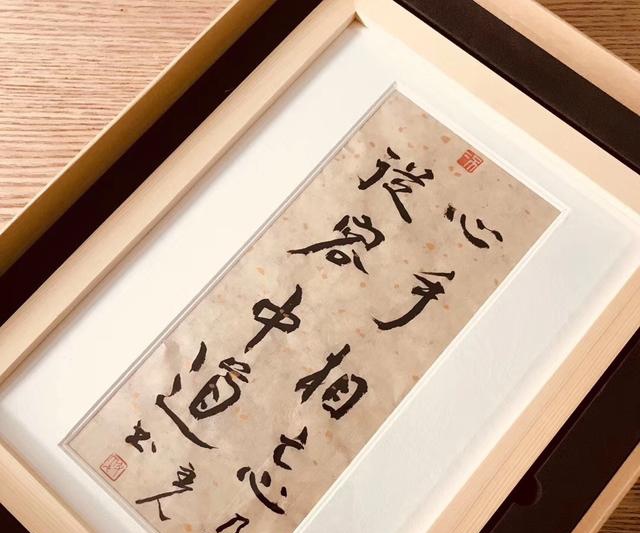 心手相忘乃
從容中道